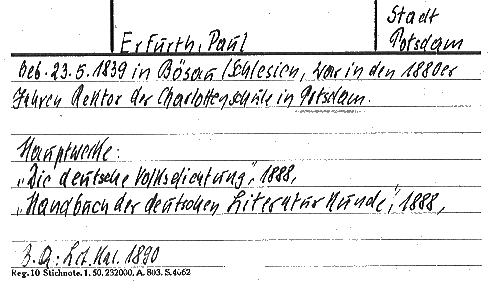 Stadt
Erfurth, Paul Potsdam
Geb. 23.5.1839 in Bösau/Schlesien, war in den 1880er
Jahren Rektor der Charlottenschule in Potsdam.
Hauptwerke:
„Die deutsche Volksdichtung", 1888,
„Handbuch der deutschen Literaturkunde", 1888,
B.Q.: Lit. Kal. 1890
Reg. 10 Stichnote. 1. 50. 232000. A. 803. S. 4662